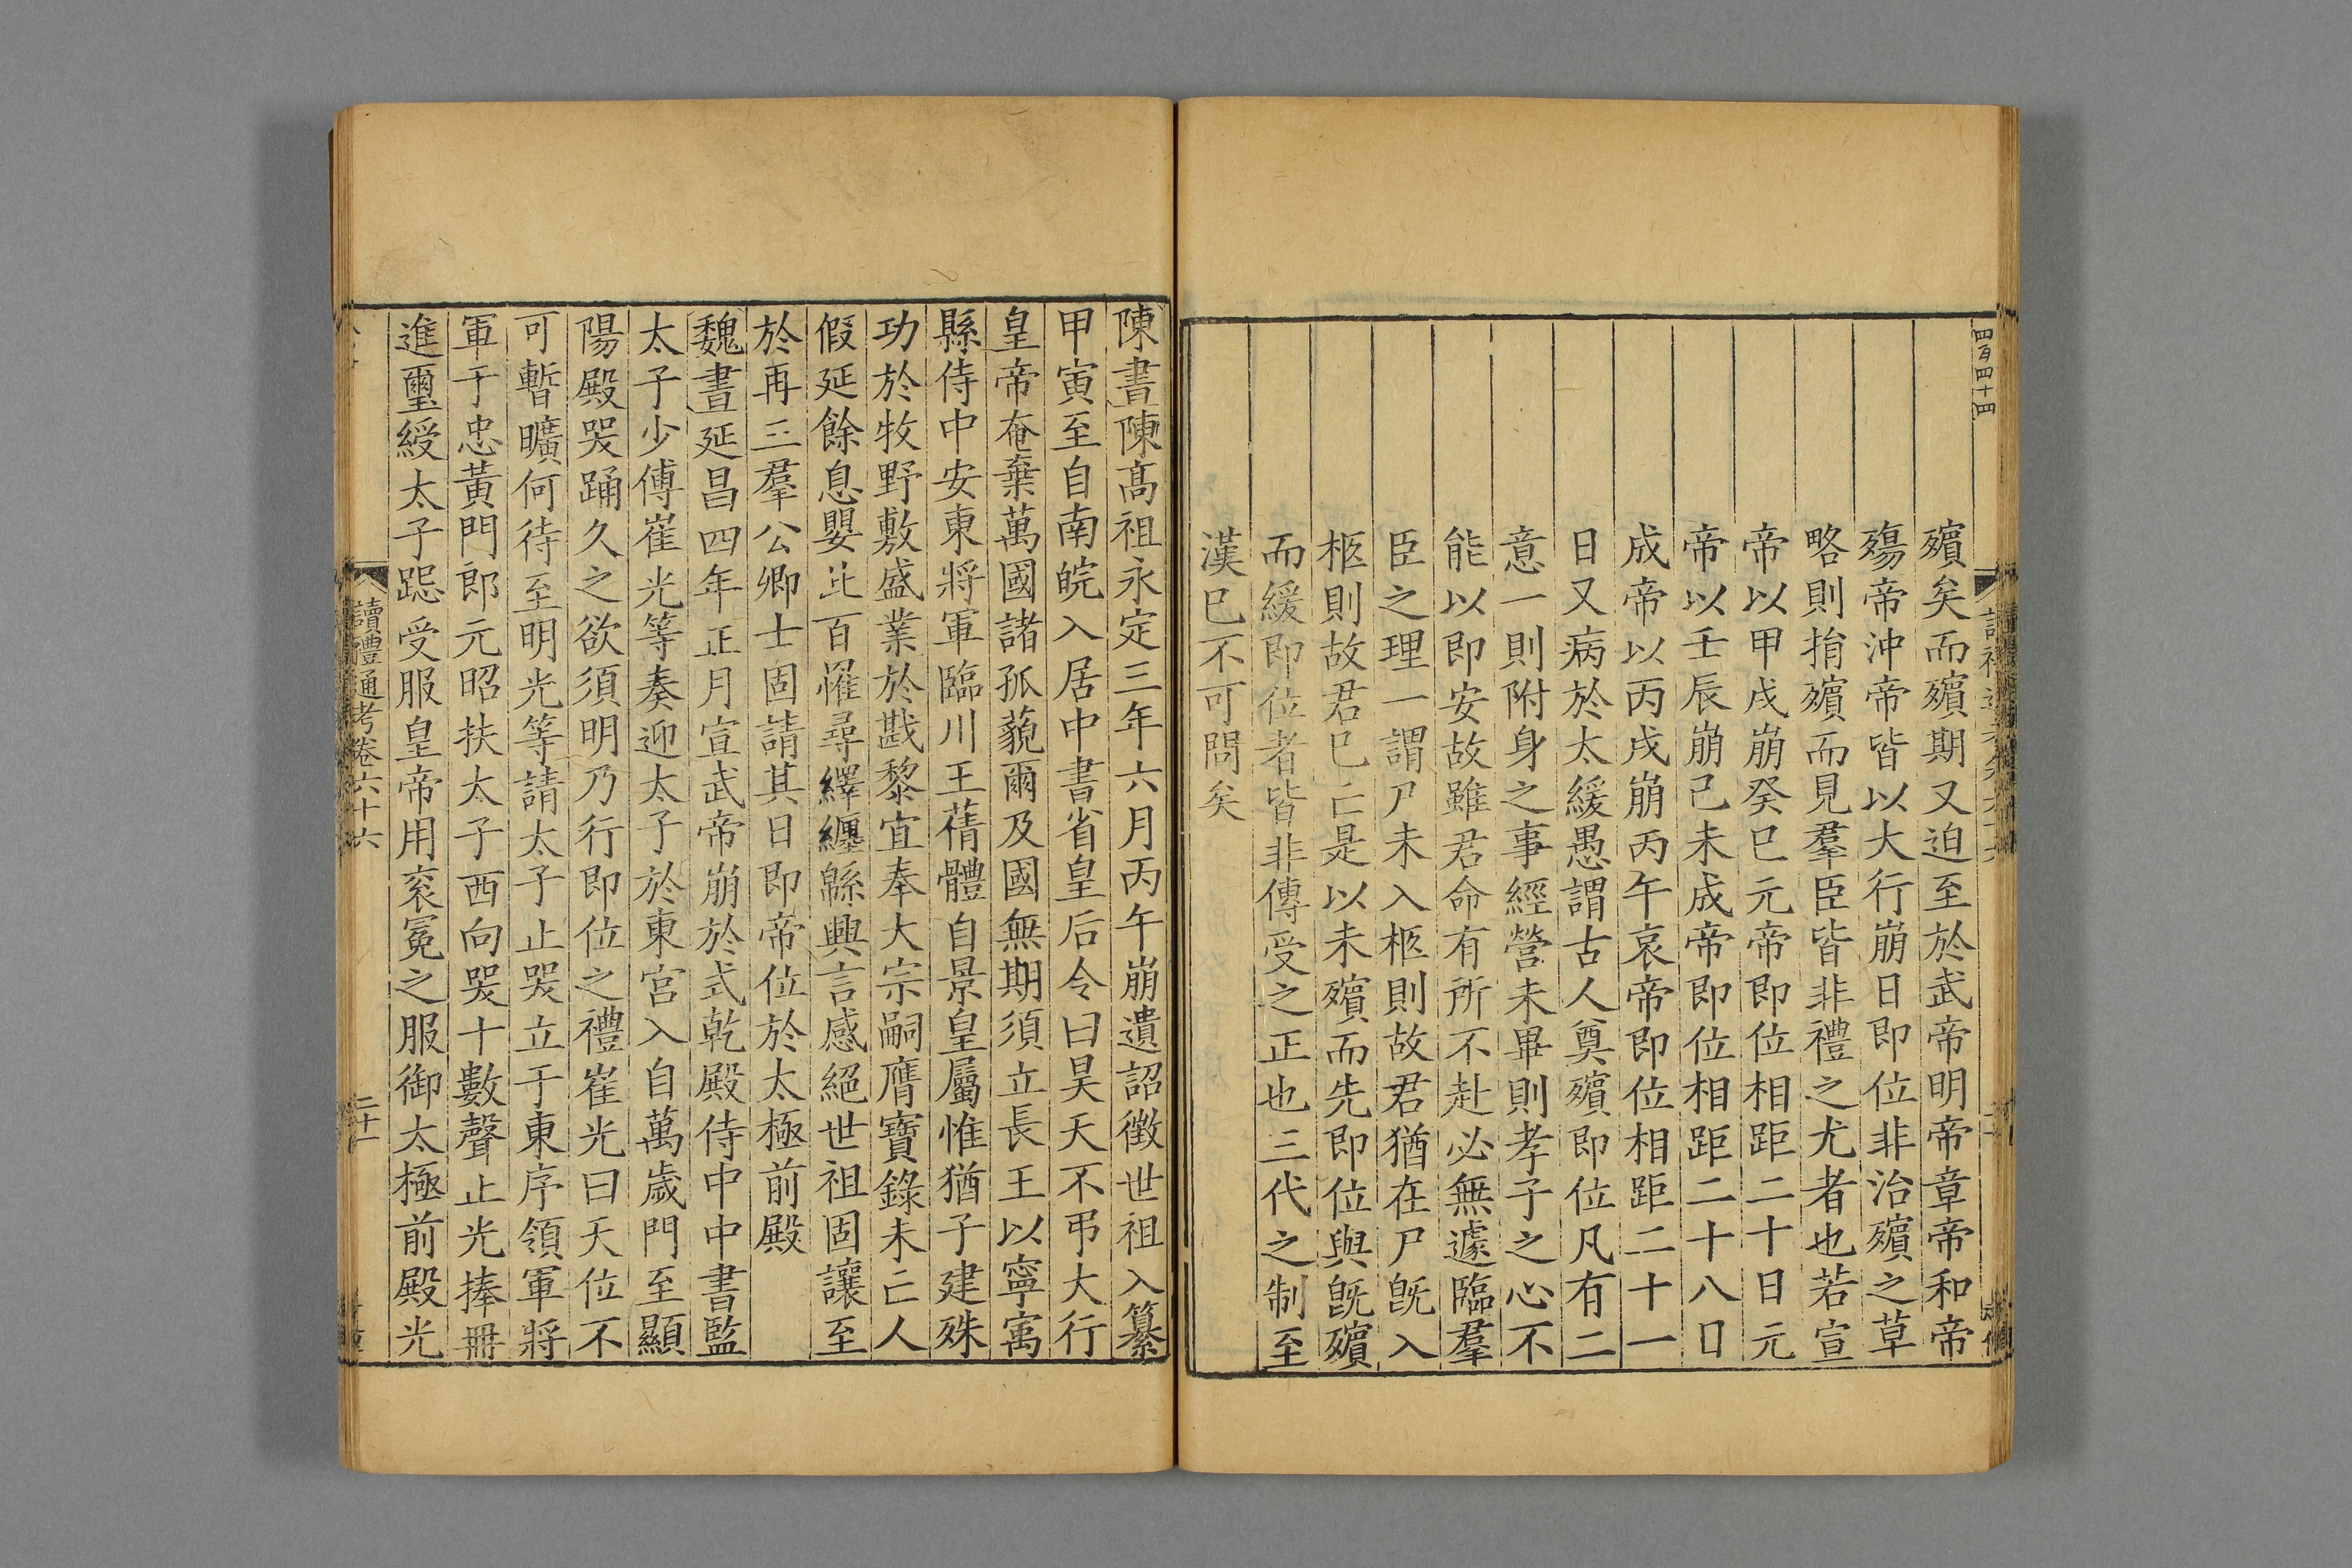 四百四十四
殯矣而殯期又迫至於武帝明帝章帝和帝
殤帝沖帝皆以大行崩日即位非治殯之草
略則指殯而見羣臣皆非禮之尤者也若宣
帝以甲戌崩癸巳元帝即位相距二十日元
帝以壬辰崩己未成帝即位相距二十八日
成帝以丙戌崩丙午哀帝即位相距二十一
日又病於太緩愚謂古人奠殯即位凡有二
意一則附身之事經營未畢則孝子之心不
能以即安故雖君命有所不赴必無遽臨羣
臣之理一謂尸未入柩則故君猶在尸旣入
柩則故君已亡是以未殯而先即位與旣殯
而緩即位者皆非傳受之正也三代之制至
漢已不可問矣
陳書陳高祖永定三年六月丙午崩遺詔徵世祖入纂
甲寅至自南皖入居中書省皇后令曰昊天不弔大行
皇帝奄棄萬國諸孤藐爾及國無期須立長王以寧寓
縣侍中安東將軍臨川王蒨體自景皇屬惟猶子建殊
功於牧野敷盛業於戡黎宜奉大宗嗣膺寶錄未亡人
假延餘息嬰此百罹尋繹纏緜興言感絕世祖固讓至
於再三羣公卿士固請其日即帝位於太極前殿
魏書延昌四年正月宣武帝崩於式乾殿侍中中書監
太子少傅崔光等奏迎太子於東宮入自萬歲門至顯
陽殿哭踊久之欲須明乃行即位之禮崔光曰天位不
可暫曠何待至明光等請太子止哭立于東序領軍將
軍于忠黃門郎元昭扶太子西向哭十數聲止光捧冊
進璽綬太子跽受服皇帝用袞冕之服御太極前殿光
讀禮通考卷六十六
二十一